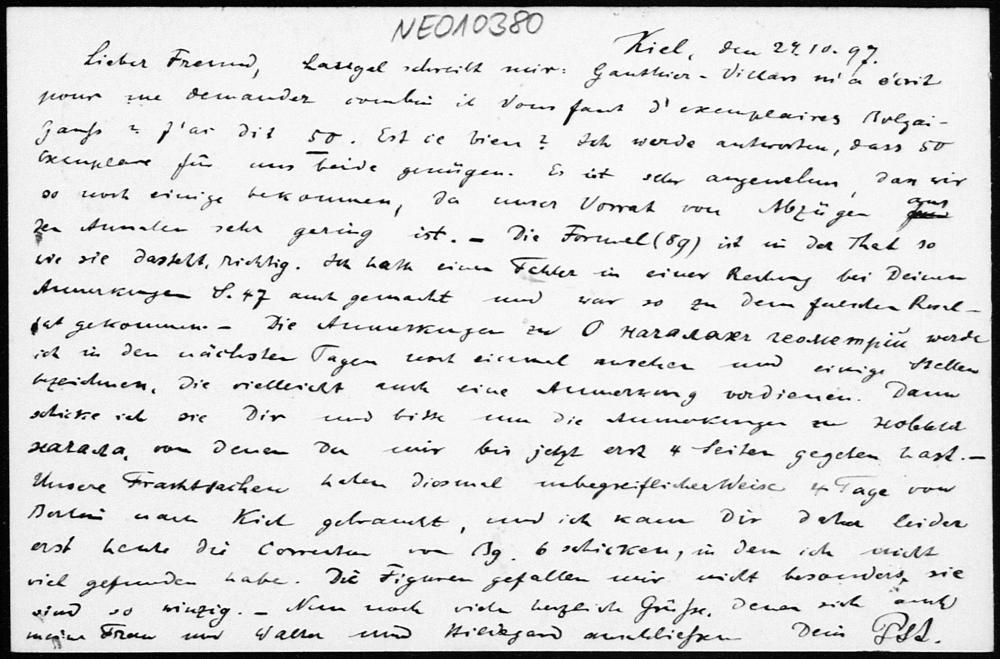 NEO10380
Kiel, den 24.10.97.
Lieber Freund, Laugel schreibt mir: Gauthier-Villars m'a écrit
pour me demander combien il Vous faut d'exemplaires Bolyai-
Gauß? J'ai dit 50. Est ce bien? Ich werde antworten, dass 50
Exemplare für uns beide genügen. Es ist sehr angenehm, dass wir
so noch einige bekommen, da unser Vorrath von Abzügen aus
den Annalen sehr gering ist. – Die Formel (89) ist in der That so
wie sie dasteht, richtig. Ich hatte einen Fehler in einer Rechnung bei Deinen
Anmerkungen S. 47 auch gemacht und war so zu dem falschen Resul-
tat gekommen. – Die Anmerkungen zu О началахъ геометріи werde
ich in den nächsten Tagen noch einmal ansehen und einige Stellen
bezeichnen, die vielleicht auch eine Anmerkung verdienen. Dann
schicke ich sie Dir und bitte um die Anmerkungen zu новыя
начала, von denen Du mir bis jetzt erst 4 Seiten gegeben hast. –
Unsere Frachtsachen haben diesmal unbegreiflicher Weise 4 Tage von
Berlin nach Kiel gebraucht, und ich kann Dir daher leider
erst heute die Correctur von Bg. 6 schicken, in dem ich nicht
viel gefunden habe. Die Figuren gefallen mir nicht besonders, sie
sind so winzig. – Nun noch viele herzliche Grüße, denen sich auch
meine Frau und Walter und Hildegard anschließen Dein PSt.